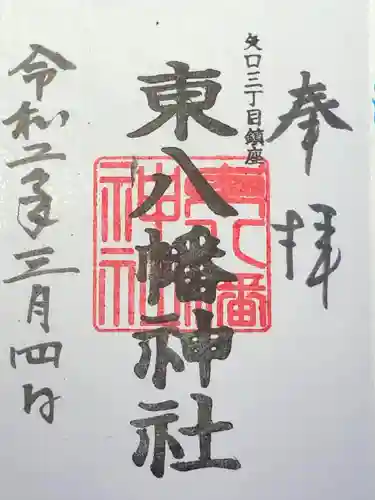 奉拝
矢口三丁目鎮座
東八幡神社
東八幡神社
令和二年三月四日